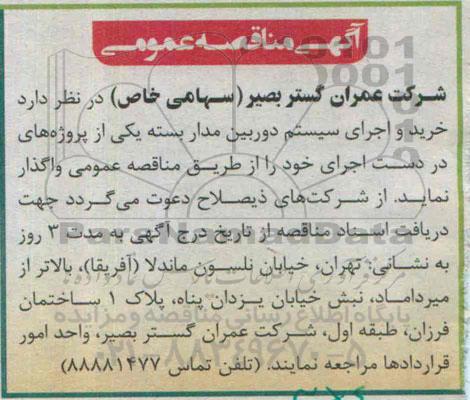 آگهی مناقصه عمومی
شرکت عمران گستر بصیر (سهامی خاص) در نظر دارد
خرید و اجرای سیستم دوربین مدار بسته یکی از پروژه‌های
در دست اجرای خود را از طریق مناقصه عمومی واگذار
نماید. از شرکت‌های ذیصلاح دعوت می‌گردد جهت
دریافت اسناد مناقصه از تاریخ درج آگهی به مدت ۳ روز
به نشانی: تهران، خیابان نلسون ماندلا (آفریقا)، بالاتر از
میرداماد، نبش خیابان یزدان پناه، پلاک ۱ ساختمان
فرزان، طبقه اول، شرکت عمران گستر بصیر، واحد امور
قراردادها مراجعه نمایند. (تلفن تماس ۸۸۸۸۱۴۷۷)
ParsNamadData
پایگاه اطلاع رسانی مناقصه و مزایده